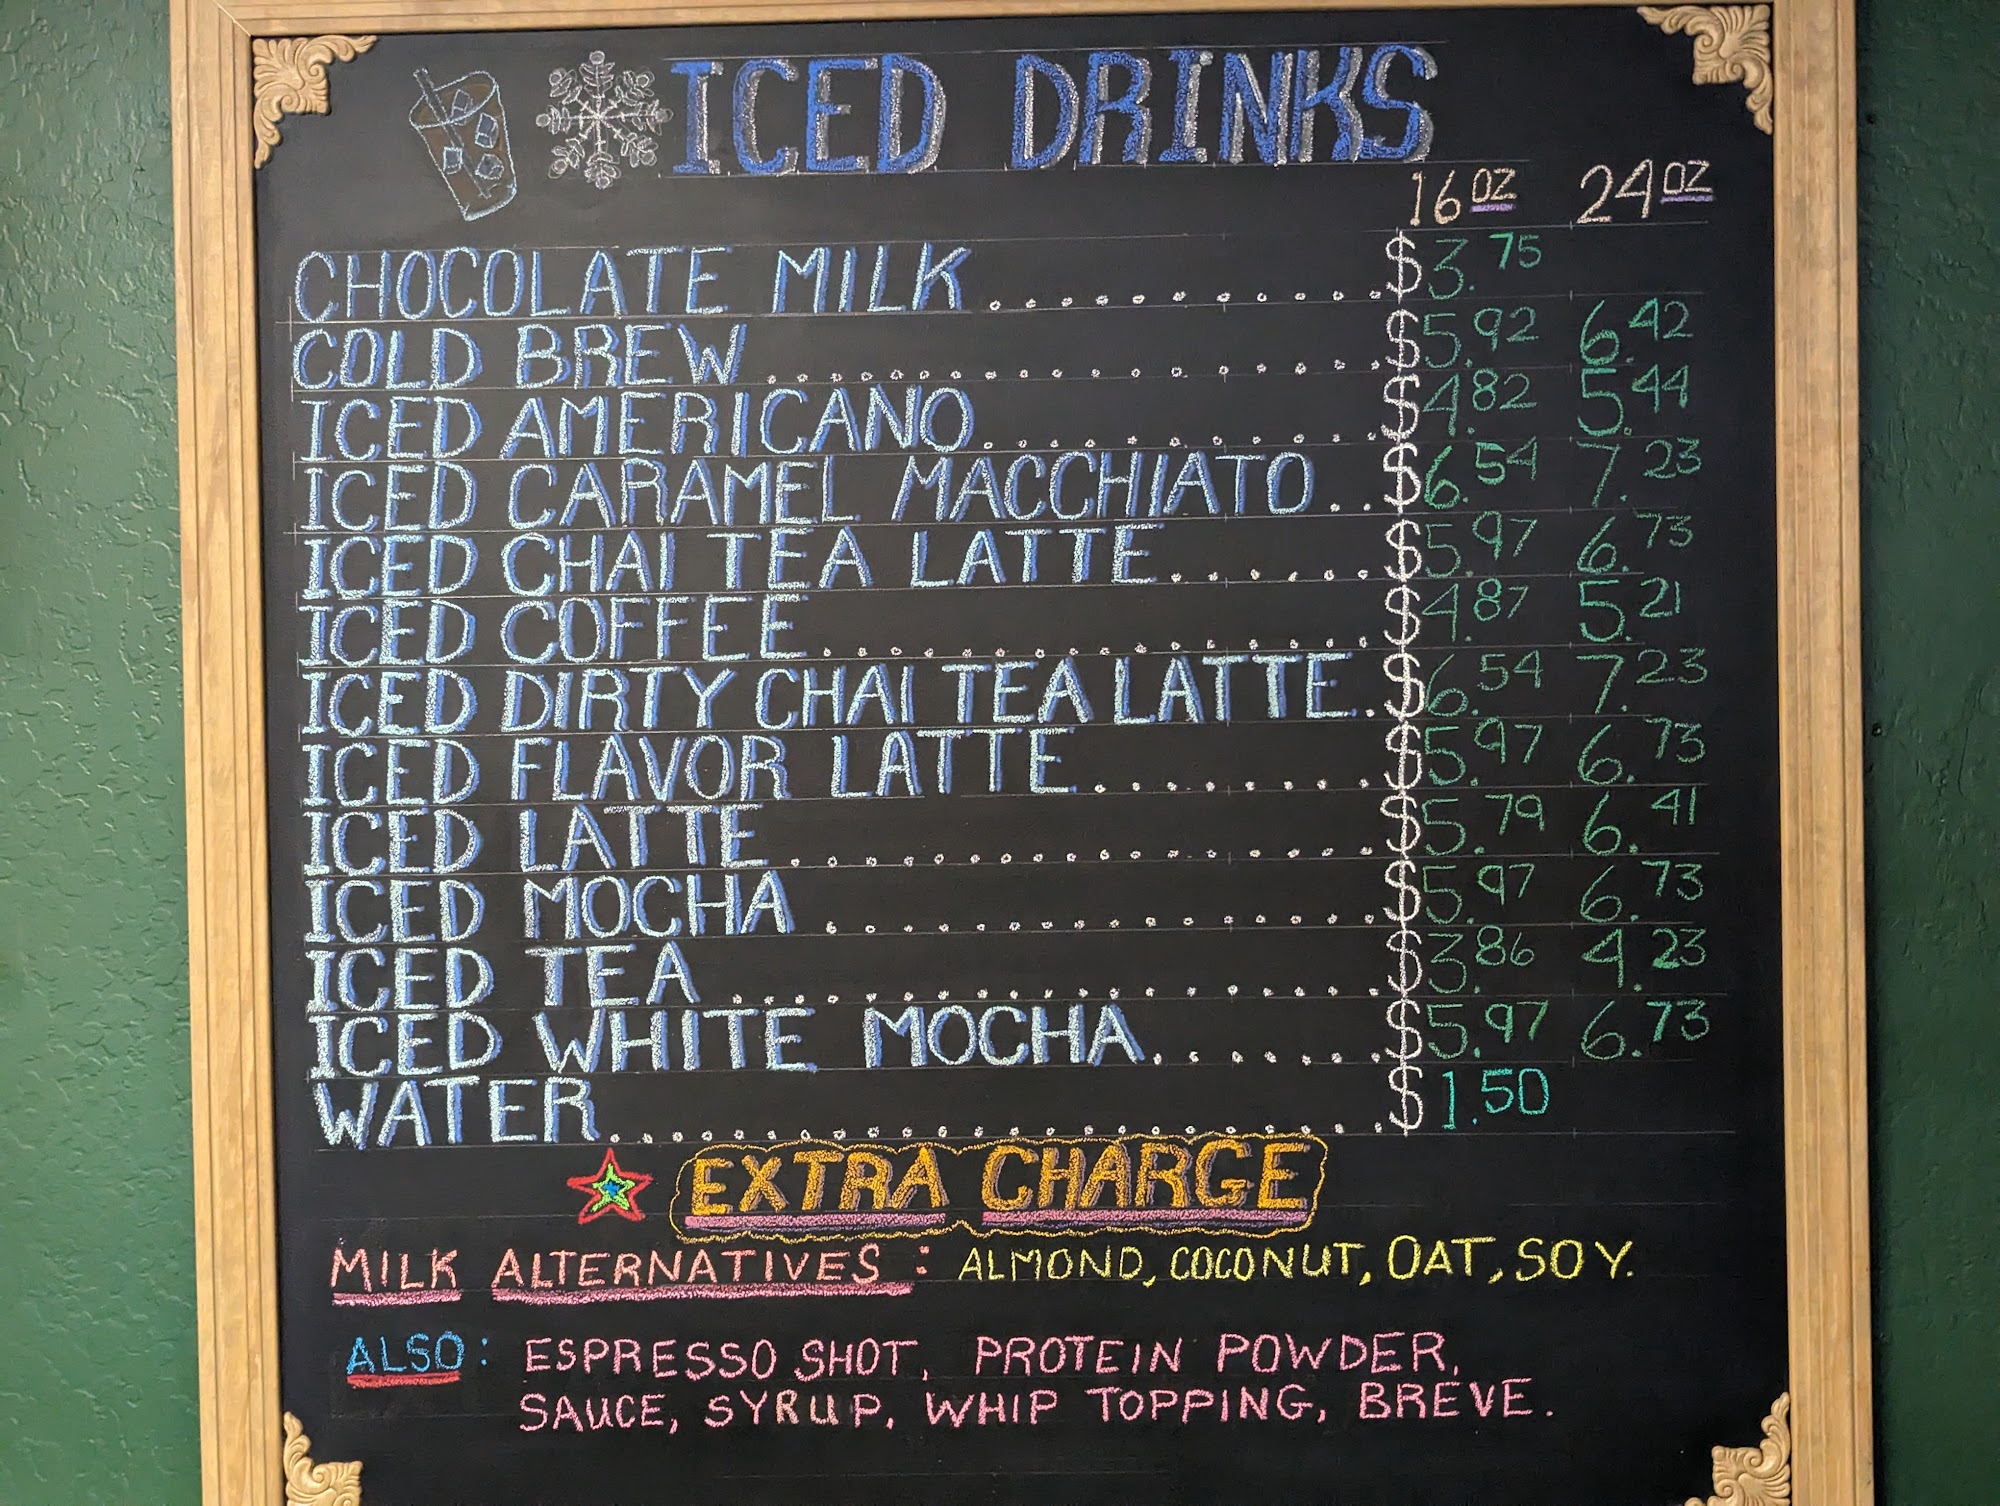 ICED DRINKS
16 OZ 24 OZ
CHOCOLATE MILK.............$3.75
COLD BREW..................$5.92 6.42
ICED AMERICANO............$4.82 5.44
ICED CARAMEL MACCHIATO..$6.54 7.23
ICED CHAI TEA LATTE......$5.97 6.73
ICED COFFEE................$4.87 5.21
ICED DIRTY CHAI TEA LATTE..$6.54 7.23
ICED FLAVOR LATTE........$5.97 6.73
ICED LATTE.................$5.79 6.41
ICED MOCHA................$5.97 6.73
ICED TEA...................$3.86 4.23
ICED WHITE MOCHA.......$5.97 6.73
WATER......................$1.50
EXTRA CHARGE
MILK ALTERNATIVES: ALMOND, COCONUT, OAT, SOY.
ALSO: ESPRESSO SHOT, PROTEIN POWDER,
SAUCE, SYRUP, WHIP TOPPING, BREVE.